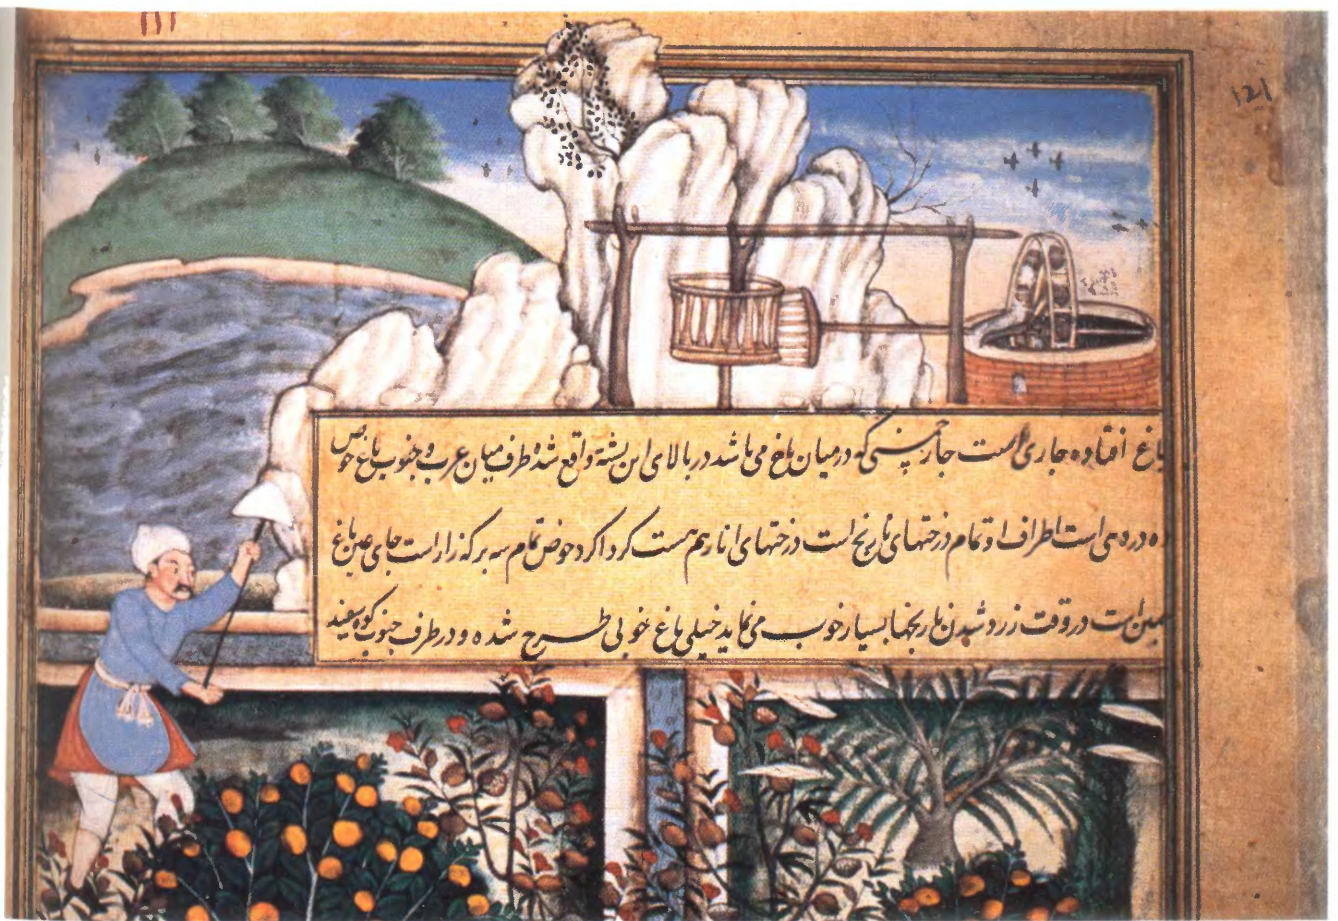 ۱۲۱
باغ افتاده جاری است چار چمنی که در میان باغ می باشد در بالای این پشته واقع شده طرف میان غرب و جنوب باغ حوض
ده در ده ی است اطراف او تمام درختهای نارنج است درختهای انار هم هست کرداکرد حوض تمام سه برکه زار است جای عین باغ
همین است در وقت زرد شدن نارنجها بسیار خوب می نماید خیلی باغ خوبی طرح شده و در طرف جنوب کوه سفید